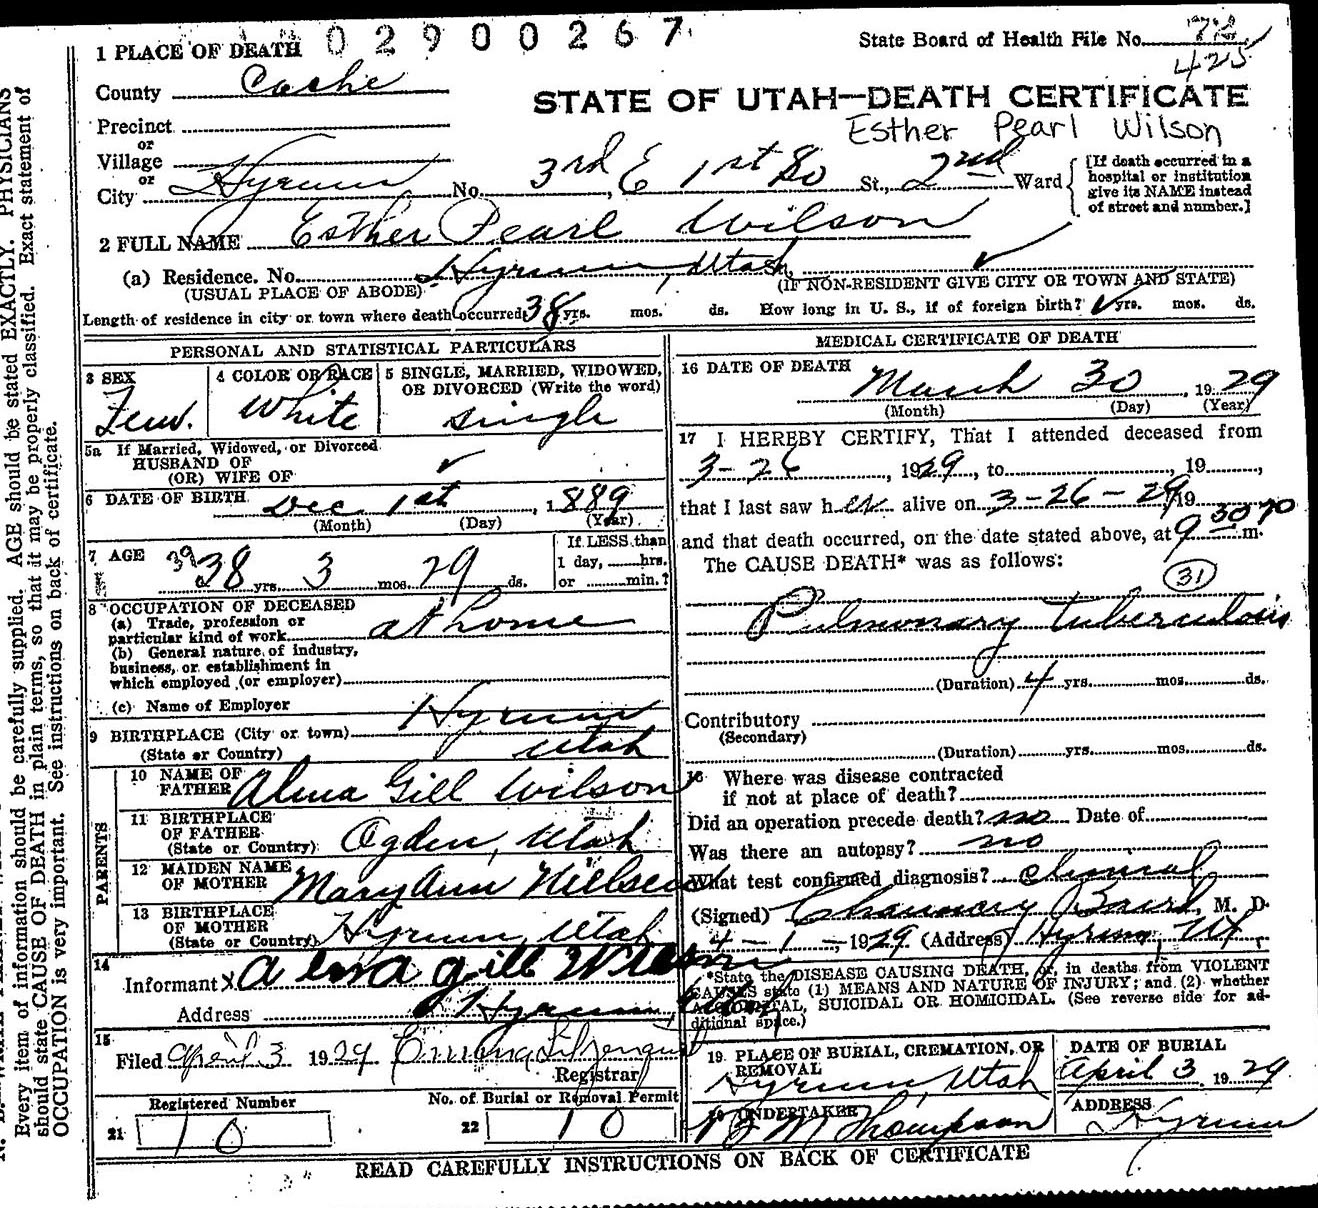 02900267
State Board of Health File No. 72
425
1 PLACE OF DEATH
County Cache
STATE OF UTAH—DEATH CERTIFICATE
Esther Pearl Wilson
Precinct
or
Village
or
City Hyrum No. 3rd E 1st So St., 2nd Ward
[If death occurred in a
hospital or institution
give its NAME instead
of street and number.]
2 FULL NAME Esther Pearl Wilson
(a) Residence. No. Hyrum, Utah
(USUAL PLACE OF ABODE) (IF NON-RESIDENT GIVE CITY OR TOWN AND STATE)
Length of residence in city or town where death occurred 38 yrs. mos. ds. How long in U. S., if of foreign birth? yrs. mos. ds.
PERSONAL AND STATISTICAL PARTICULARS
3 SEX
Fem.
4 COLOR OR RACE
White
5 SINGLE, MARRIED, WIDOWED,
OR DIVORCED (Write the word)
single
5a If Married, Widowed, or Divorced
HUSBAND OF
(OR) WIFE OF
6 DATE OF BIRTH Dec 1st, 1889
(Month) (Day) (Year)
7 AGE 39 38 yrs. 3 mos. 29 ds.
If LESS than
1 day, hrs.
or min.?
8 OCCUPATION OF DECEASED
(a) Trade, profession or
particular kind of work at home
(b) General nature of industry,
business, or establishment in
which employed (or employer)
(c) Name of Employer
9 BIRTHPLACE (City or town) Hyrum
(State or Country) Utah
PARENTS
10 NAME OF
FATHER Alma Gill Wilson
11 BIRTHPLACE
OF FATHER
(State or Country) Ogden, Utah
12 MAIDEN NAME
OF MOTHER Mary Ann Nielsen
13 BIRTHPLACE
OF MOTHER
(State or Country) Hyrum, Utah
14
Informant X Alma Gill Wilson
Address Hyrum, Utah
15
Filed April 3 1929
Registrar
Registered Number
21 10
No. of Burial or Removal Permit
22 10
MEDICAL CERTIFICATE OF DEATH
16 DATE OF DEATH
March 30, 1929
(Month) (Day) (Year)
17 I HEREBY CERTIFY, That I attended deceased from
3-26, 1929, to , 19 ,
that I last saw her alive on 3-26-29 19
and that death occurred, on the date stated above, at 9 30 m.
The CAUSE DEATH* was as follows:
31
Pulmonary tuberculosis
(Duration) 4 yrs. mos. ds.
Contributory
(Secondary)
(Duration) yrs. mos. ds.
Where was disease contracted
if not at place of death?
Did an operation precede death? no Date of
Was there an autopsy? no
What test confirmed diagnosis? clinical
(Signed) Chauncey Baird, M. D.
4-1-, 1929 (Address) Hyrum, Ut
*State the DISEASE CAUSING DEATH, or, in deaths from VIOLENT
CAUSES state (1) MEANS AND NATURE OF INJURY; and (2) whether
ACCIDENTAL, SUICIDAL OR HOMICIDAL. (See reverse side for ad-
ditional space.)
19 PLACE OF BURIAL, CREMATION, OR
REMOVAL
Hyrum, Utah
DATE OF BURIAL
April 3 1929
UNDERTAKER
Thompson
ADDRESS
Hyrum
READ CAREFULLY INSTRUCTIONS ON BACK OF CERTIFICATE
Every item of information should be carefully supplied. AGE should be stated EXACTLY. PHYSICIANS
should state CAUSE OF DEATH in plain terms, so that it may be properly classified. Exact statement of
OCCUPATION is very important. See instructions on back of certificate.